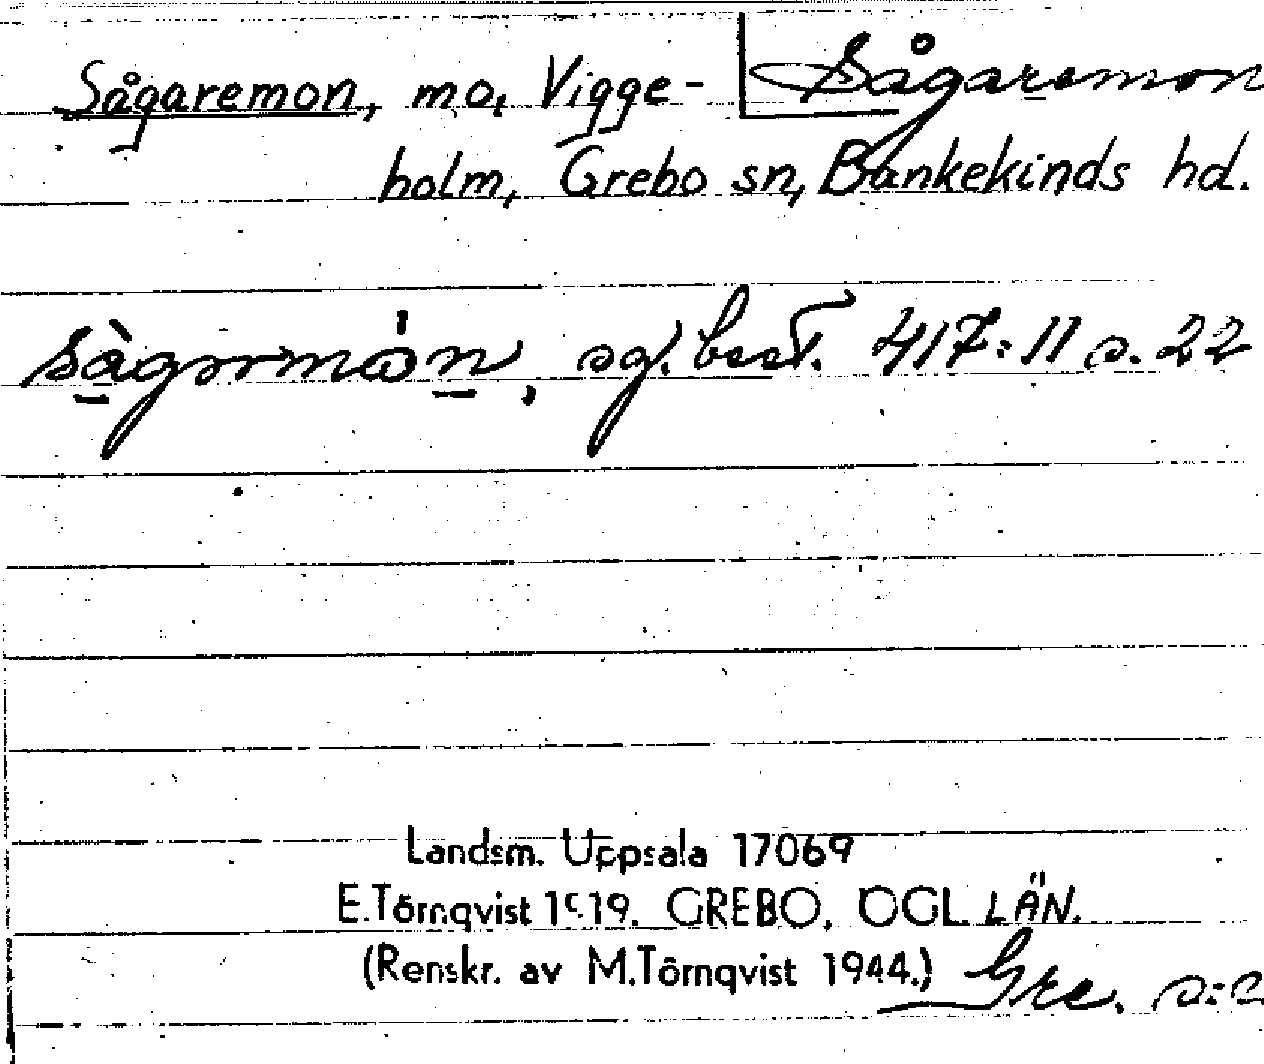 Sågaremon, mo, Vigge- Sågaremon
holm, Grebo sn, Bankekinds hd.
sg. best. 417:11 s. 22
Landsm. Uppsala 17069
E.Törnqvist 1919. GREBO, ÖGL LÄN.
(Renskr. av M.Törnqvist 1944.) Gre.